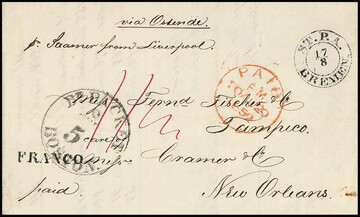 via Ostende
pr Steamer from Liverpool.
ST. P. A.
17
8
BREMEN.
PAID
Fernd Fischer & Co
Tampico.
BR. PACKET
5
BOSTON
FRANCO
care
Messrs Cramer & Co
New Orleans.
paid.